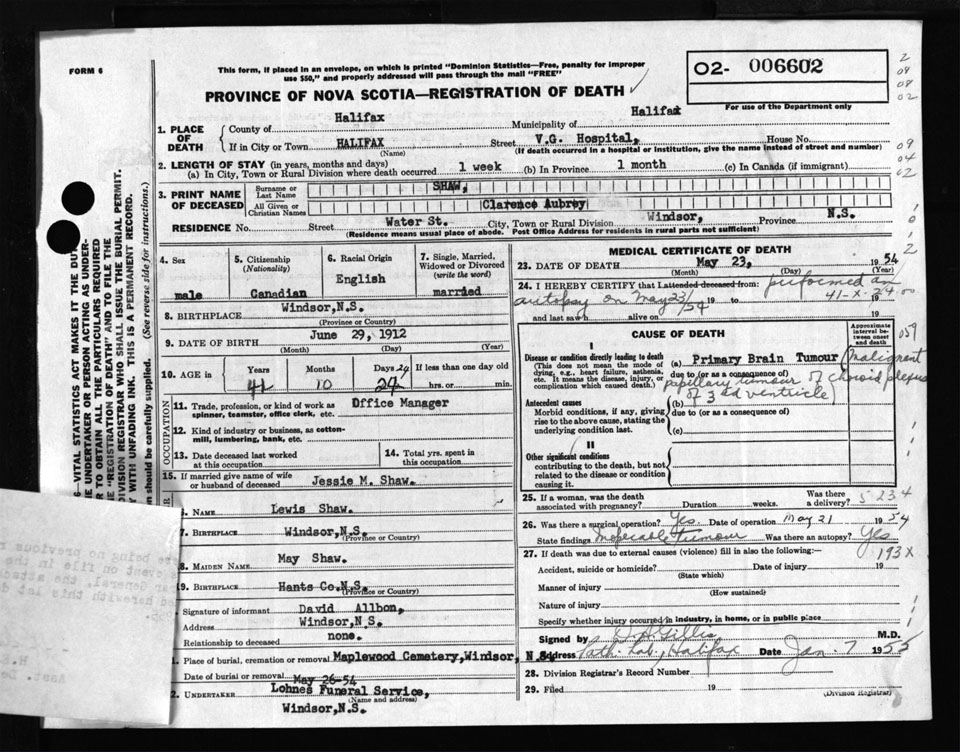 FORM 6
This form, if placed in an envelope, on which is printed "Dominion Statistics—Free, penalty for improper
use $50," and properly addressed will pass through the mail "FREE"
PROVINCE OF NOVA SCOTIA—REGISTRATION OF DEATH
02- 006602
For use of the Department only
2
09
08
02
09
04
02
1. PLACE OF DEATH
County of Halifax Municipality of Halifax
If in City or Town HALIFAX Street V.G. Hospital, House No.
(Name) (If death occurred in a hospital or institution, give the name instead of street and number)
2. LENGTH OF STAY (in years, months and days)
(a) In City, Town or Rural Division where death occurred 1 week (b) In Province 1 month (c) In Canada (if immigrant)
3. PRINT NAME OF DECEASED
Surname or Last Name SHAW,
All Given or Christian Names Clarence Aubrey
RESIDENCE No. Street Water St. City, Town or Rural Division Windsor, Province N.S.
(Residence means usual place of abode. Post Office Address for residents in rural parts not sufficient)
4. Sex male
5. Citizenship (Nationality) Canadian
6. Racial Origin English
7. Single, Married, Widowed or Divorced (write the word) married
8. BIRTHPLACE Windsor,N.S.
(Province or Country)
9. DATE OF BIRTH June 29, 1912
(Month) (Day) (Year)
10. AGE in Years Months Days If less than one day old
41 10 24 hrs. or min.
OCCUPATION
11. Trade, profession, or kind of work as spinner, teamster, office clerk, etc. Office Manager
12. Kind of industry or business, as cotton-mill, lumbering, bank, etc.
13. Date deceased last worked at this occupation
14. Total yrs. spent in this occupation
15. If married give name of wife or husband of deceased Jessie M. Shaw.
6. NAME Lewis Shaw.
7. BIRTHPLACE Windsor,N.S.
(Province or Country)
8. MAIDEN NAME May Shaw.
9. BIRTHPLACE Hants Co.N.S.
(Province or Country)
Signature of informant David Allbon,
Address Windsor,N.S.
Relationship to deceased none.
Place of burial, cremation or removal Maplewood Cemetery,Windsor, N.S.
Date of burial or removal May 26-54
2. UNDERTAKER Lohnes Funeral Service,
(Name and address)
Windsor,N.S.
MEDICAL CERTIFICATE OF DEATH
23. DATE OF DEATH May 23, 1954
(Month) (Day) (Year)
24. I HEREBY CERTIFY that I attended deceased from: performed an
autopsy on May 23/54 19 to 41-X-24-00 19
and last saw h alive on 19
CAUSE OF DEATH
Approximate interval between onset and death
059
I
Disease or condition directly leading to death (a) Primary Brain Tumour (malignant
(This does not mean the mode of dying, e.g., heart failure, asthenia, etc. It means the disease, injury, or complication which caused death.)
due to (or as a consequence of)
papillary tumour of choroid plexus
of 3rd ventricle)
Antecedent causes (b)
Morbid conditions, if any, giving rise to the above cause, stating the underlying condition last.
due to (or as a consequence of)
(c)
II
Other significant conditions
contributing to the death, but not related to the disease or condition causing it.
25. If a woman, was the death associated with pregnancy? Duration weeks. Was there a delivery? 5234
26. Was there a surgical operation? Yes. Date of operation May 21 1954
State findings Inoperable tumour Was there an autopsy? Yes
27. If death was due to external causes (violence) fill in also the following:— 193X
Accident, suicide or homicide? Date of injury 19
(State which)
Manner of injury
(How sustained)
Nature of injury
Specify whether injury occurred in industry, in home, or in public place
Signed by Gillis M.D.
Address Path. Lab., Halifax Date Jan. 7 1955
28. Division Registrar's Record Number
29. Filed 19
(Division Registrar)
6—VITAL STATISTICS ACT MAKES IT THE DUTY
THE UNDERTAKER OR PERSON ACTING AS UNDER-
TO OBTAIN ALL THE PARTICULARS REQUIRED
"REGISTRATION OF DEATH" AND TO FILE THE
DIVISION REGISTRAR WHO SHALL ISSUE THE BURIAL PERMIT.
WITH UNFADING INK. THIS IS A PERMANENT RECORD.
should be carefully supplied. (See reverse side for instructions.)